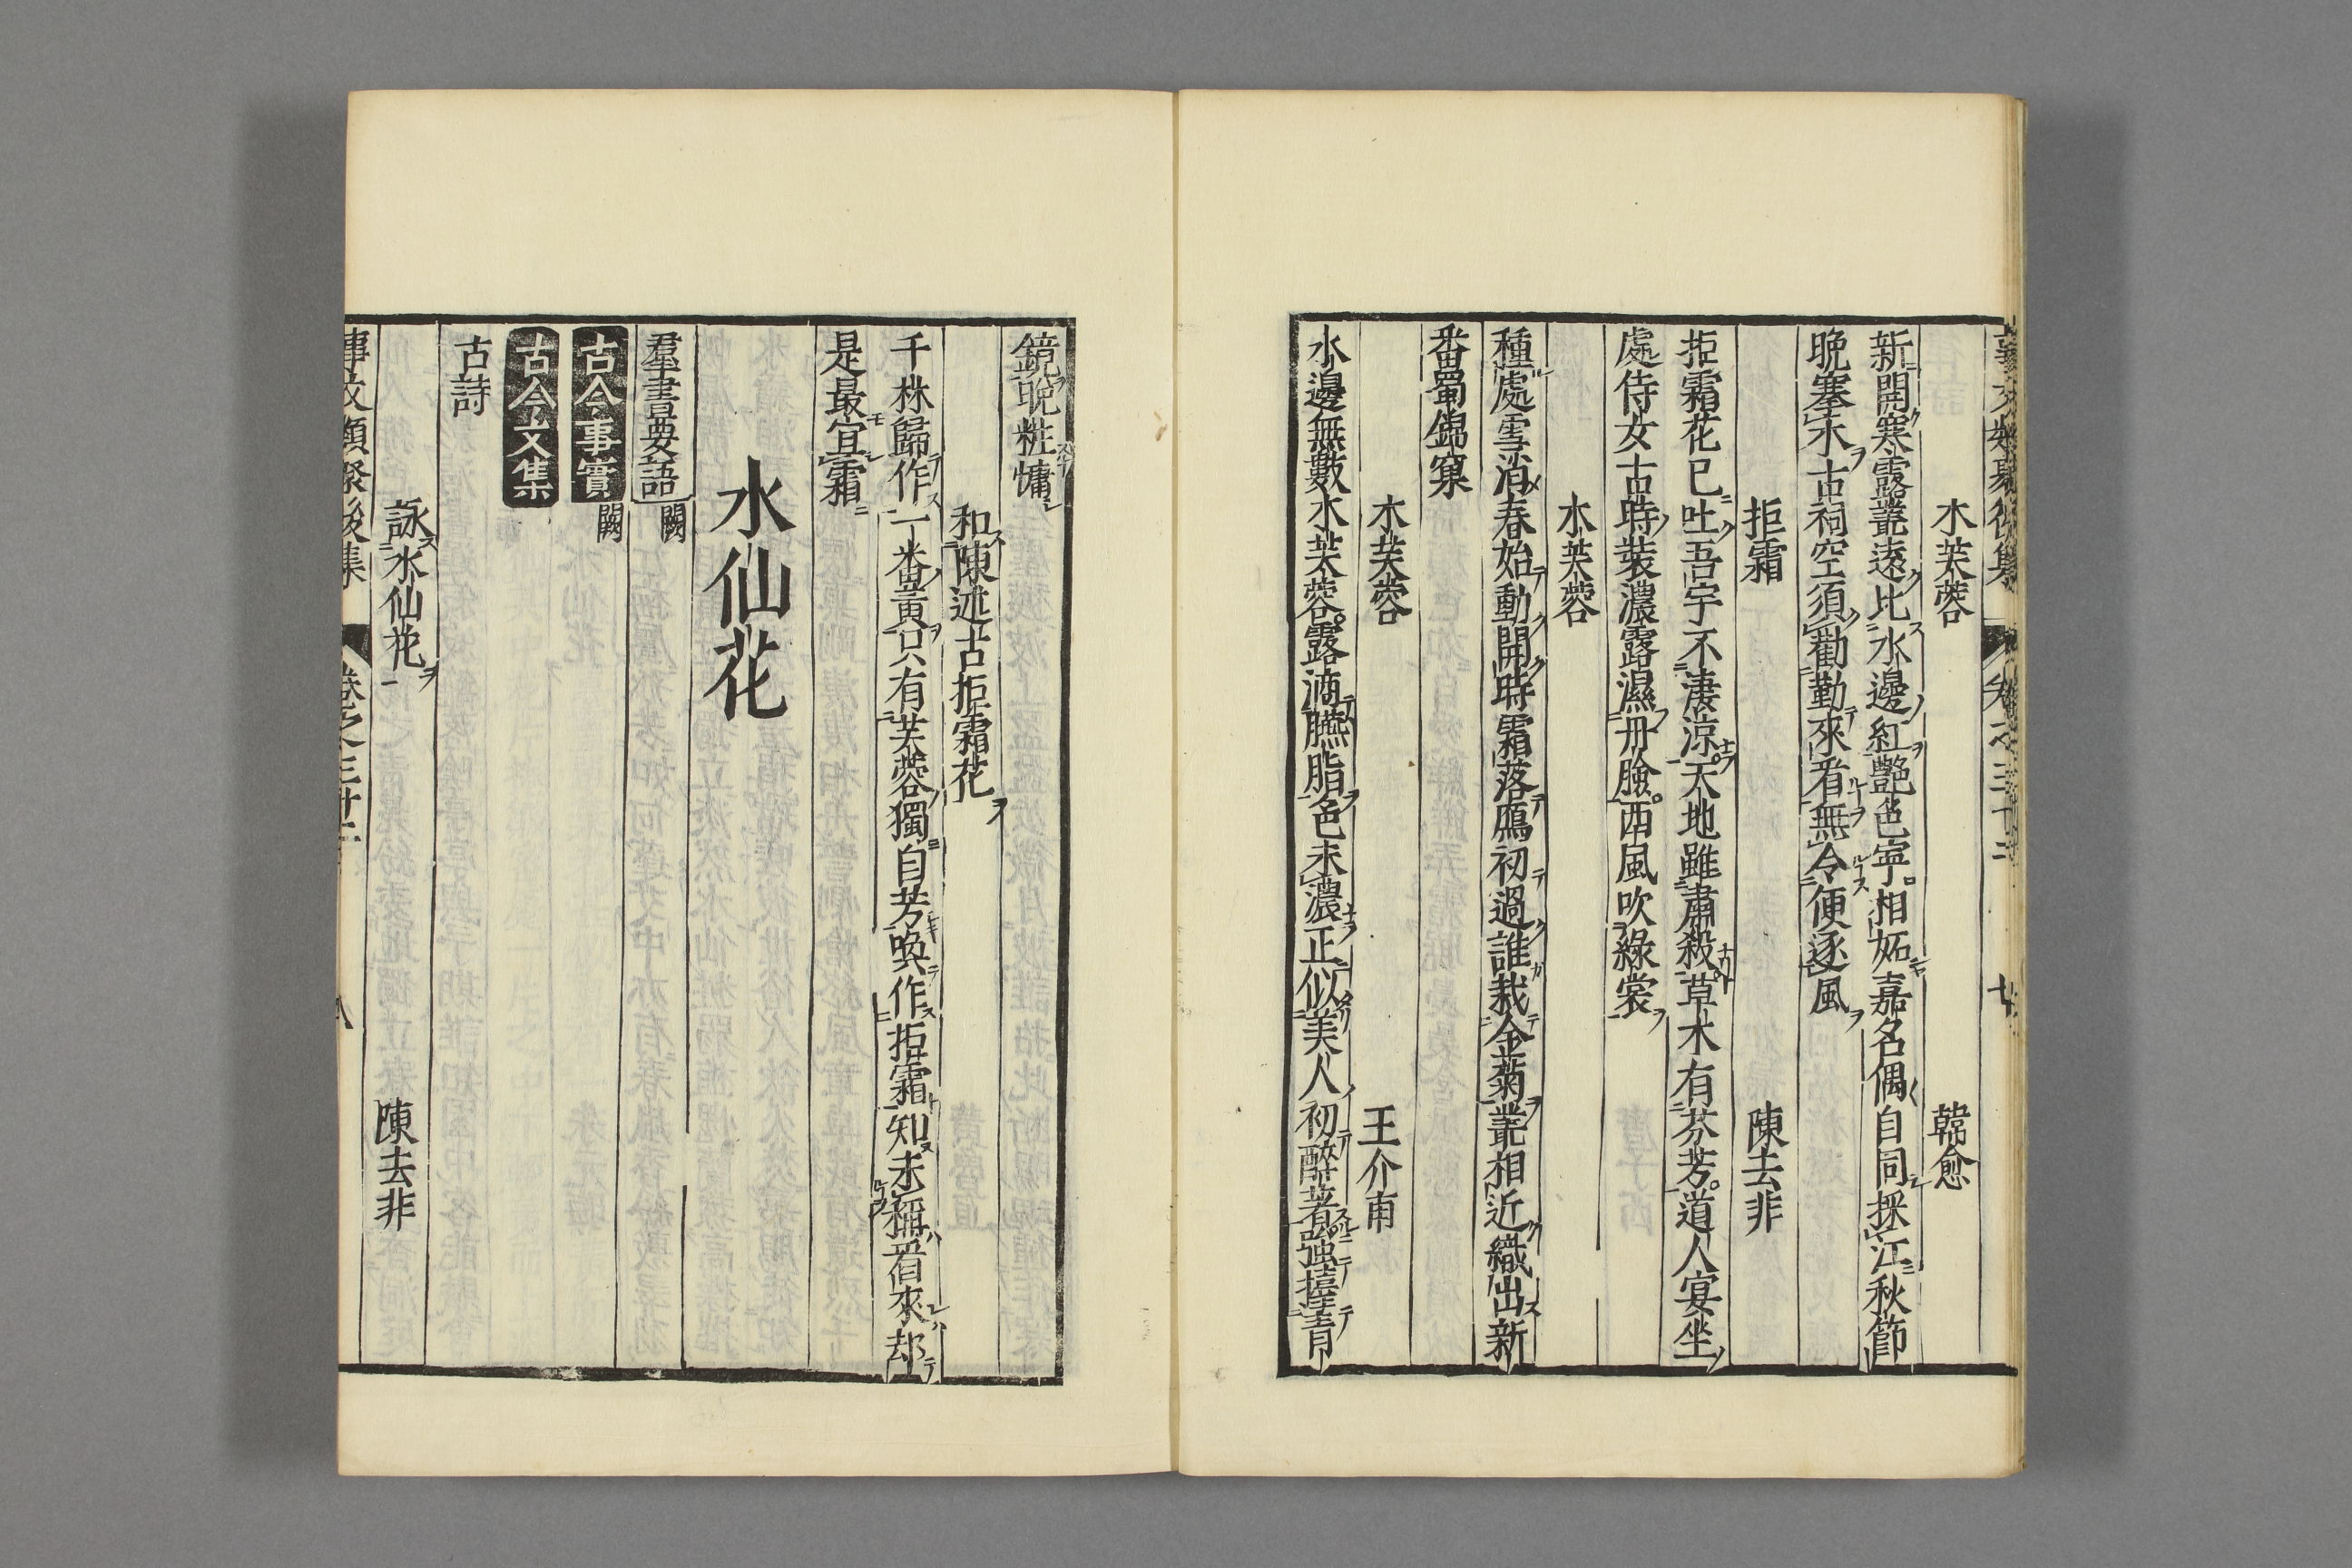 木芙蓉 韓愈
新開寒露叢遠比水邊紅艷色寧相妬嘉名偶自同採江秋節
晩塞木古祠空須勸勤來看無令便逐風
拒霜 陳去非
拒霜花已吐吾宇不淒涼天地雖肅殺草木有芬芳道人宴坐
處侍女古時裝濃露濕丹臉西風吹綠裳
木芙蓉
種處雪消春始動開時霜落鴈初過誰栽金菊叢相近織出新
番蜀錦窠
木芙蓉 王介甫
水邊無數木芙蓉露滴臙脂色未濃正似美人初醉著強擡青
鏡晩粧慵
和陳述古拒霜花
千林歸作一番黃只有芙蓉獨自芳喚作拒霜知未稱看來却
是最宜霜
水仙花
羣書要語 闕
古今事實 闕
古今文集
古詩
詠水仙花 陳去非
事文類聚後集 卷之三十二